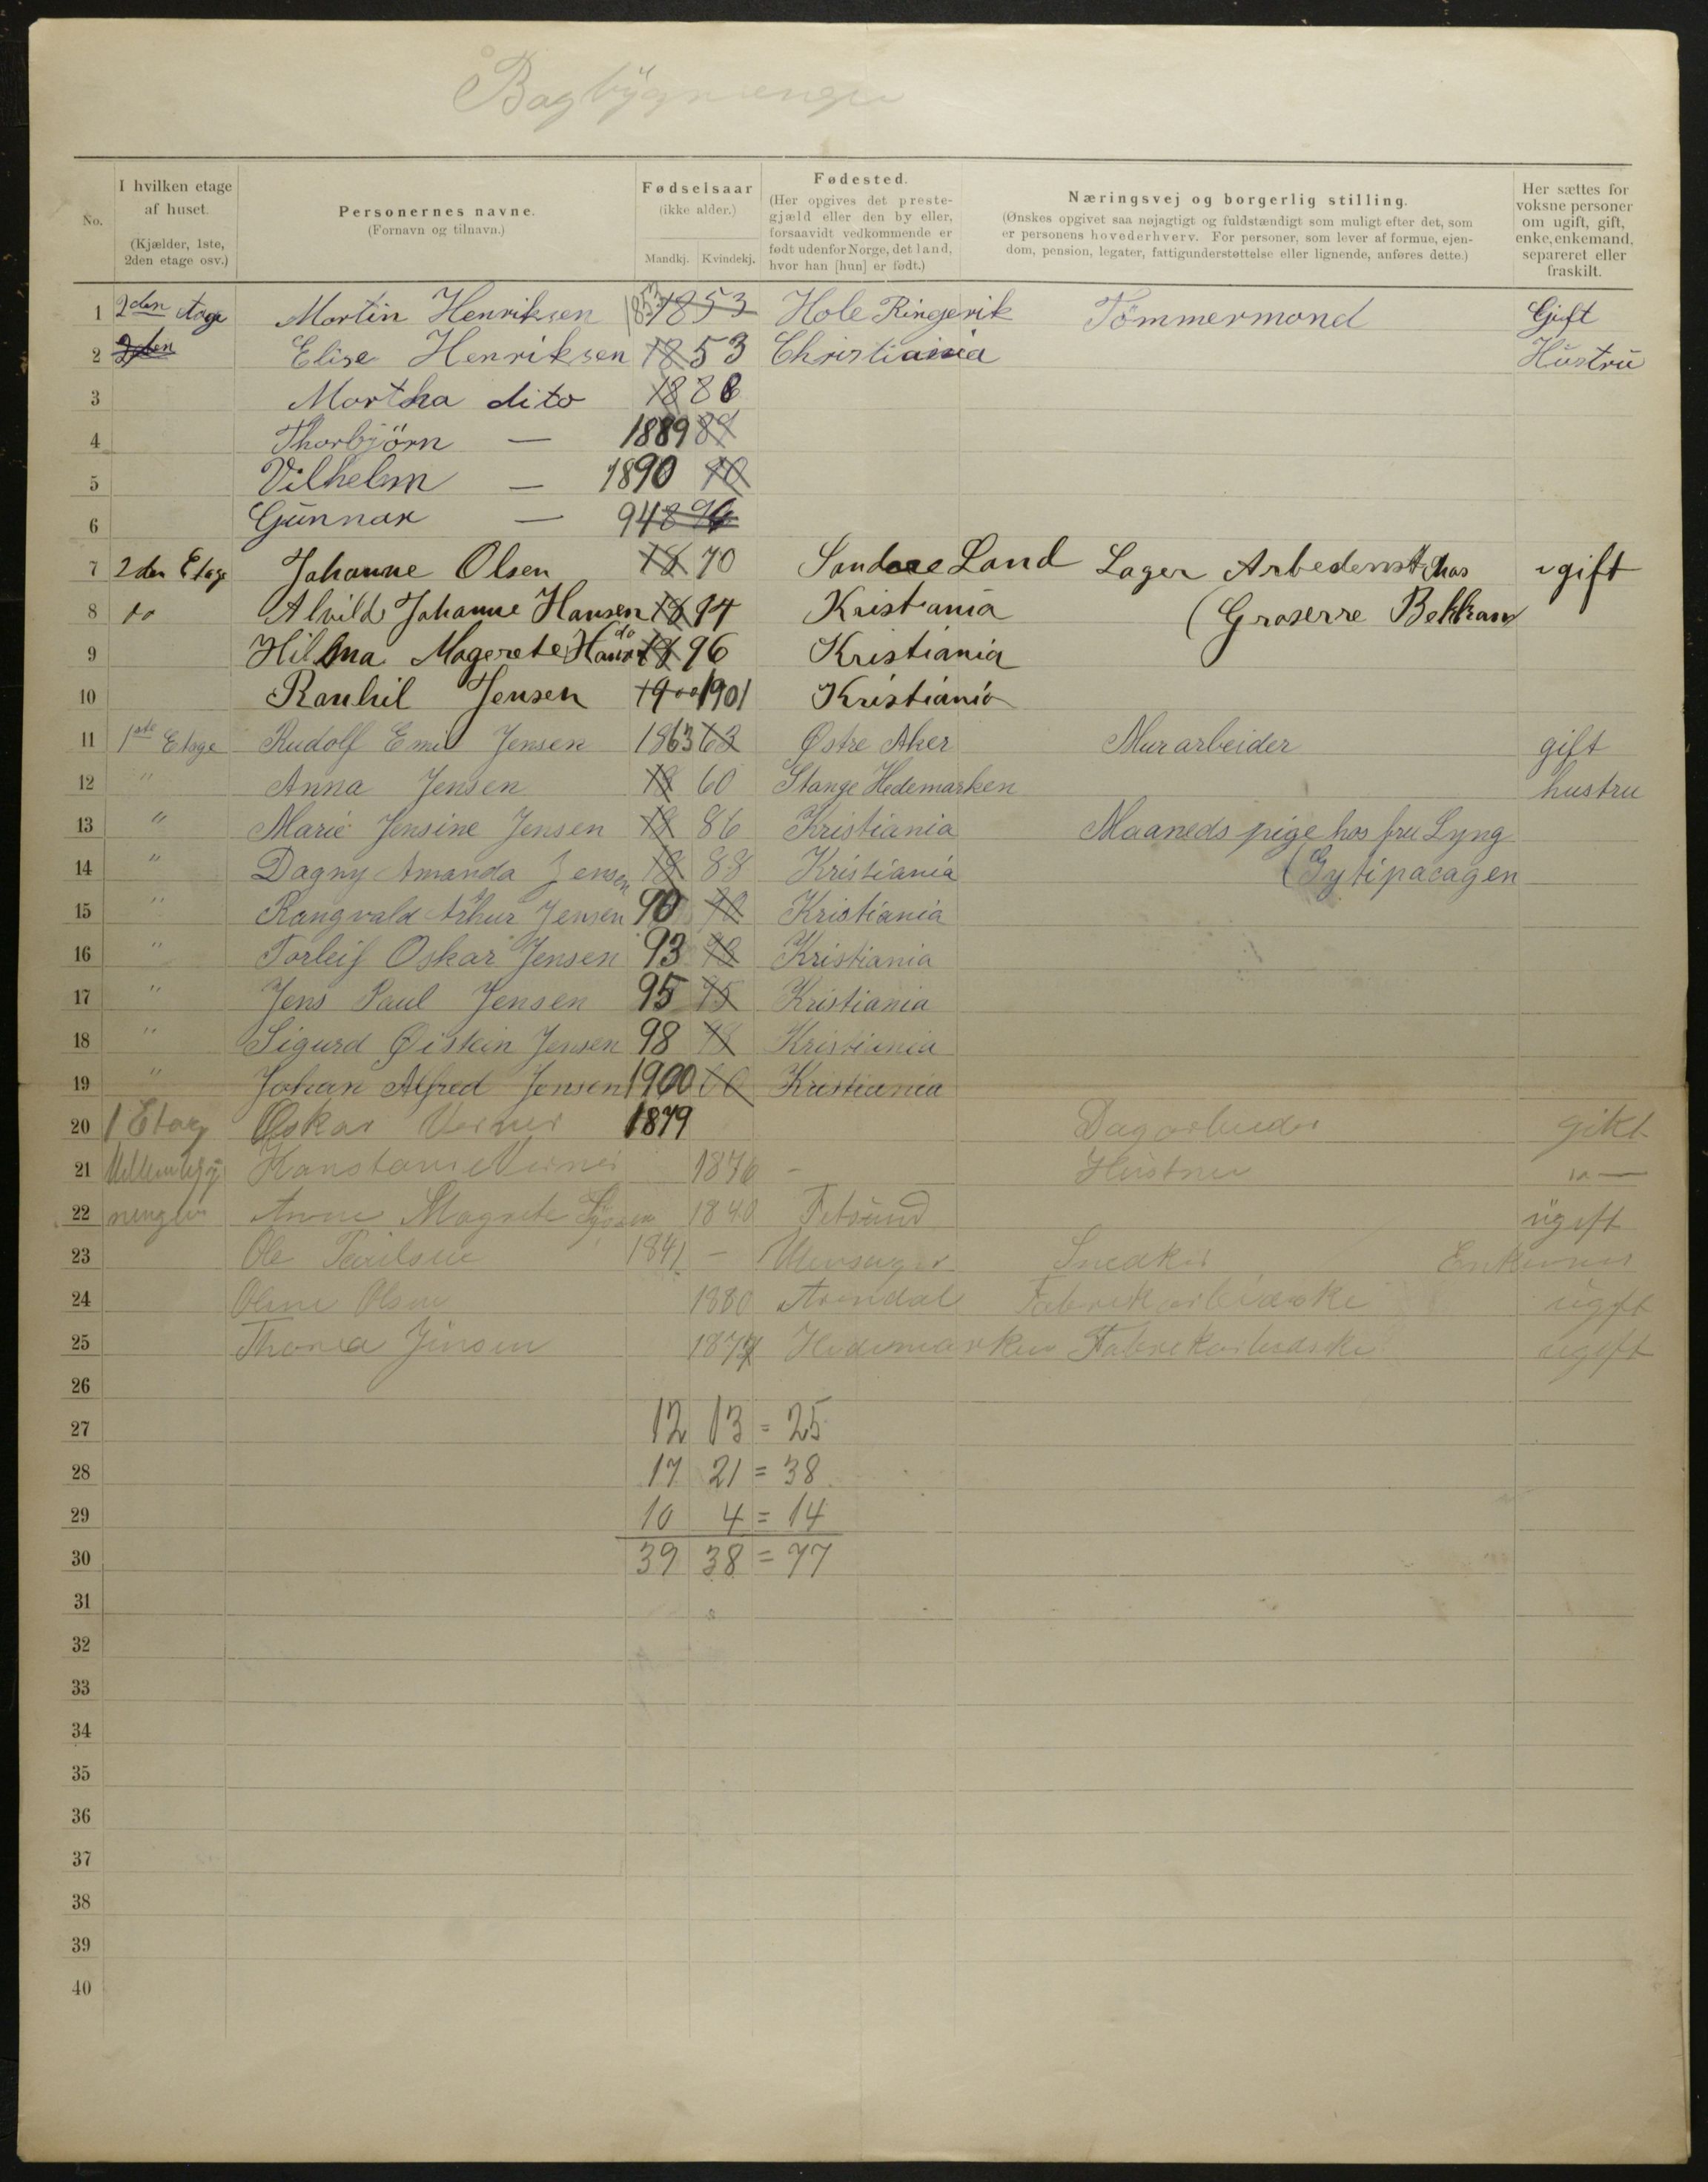 Bagbygnengen
No.
I hvilken etage af huset. (Kjælder, 1ste, 2den etage osv.)
Personernes navne. (Fornavn og tilnavn.)
Fødselsaar (ikke alder.) Mandkj. Kvindekj.
Fødested. (Her opgives det prestegjæld eller den by eller, forsaavidt vedkommende er født udenfor Norge, det land, hvor han [hun] er født.)
Næringsvej og borgerlig stilling. (Ønskes opgivet saa nøjagtigt og fuldstændigt som muligt efter det, som er personens hovederhverv. For personer, som lever af formue, ejendom, pension, legater, fattigunderstøttelse eller lignende, anføres dette.)
Her sættes for voksne personer om ugift, gift, enke, enkemand, separeret eller fraskilt.
1 2den Etage Martin Henriksen 1853 1853 Hole Ringerik Tömmermand Gift
2 2den Elise Henriksen 1853 Christiania Hústrú
3 Martha dito 1888
4 Thorbjörn — 1889 89
5 Vilhelm — 1890 90
6 Gúnnar — 94 894
7 2den Etage Johanne Olsen 1870 Sondre Land Lager Arbedenst hos ugift
8 do Alvilde Johanne Hansen 1894 Kristiania (Groserre
9 Hilma Magerete Hansen do 1896 Kristiania
10 Ranhil Jensen 1900 1901 Kristiania
11 1ste Etage Rudolf Emil Jensen 1863 63 Østre Aker Murarbeider gift
12 " Anna Jensen 18 60 Stange Hedemarken hustru
13 " Marie Jensine Jensen 18 86 Kristiania Maaneds pige hos fru Lyng
14 " Dagny Amanda Jensen 18 88 Kristiania
15 " Rangvald Arhur Jensen 90 90 Kristiania
16 " Torleif Oskar Jensen 93 93 Kristiania
17 " Jens Paul Jensen 95 95 Kristiania
18 " Sigurd Øistein Jensen 98 98 Kristiania
19 " Johan Alfred Jensen 1900 00 Kristiania
20 1 Etag Oskar Verner 1879 Dagarbeider gift
21 1876 - Hústru
22 Anne Magrete 1840 Fetsúnd úgift
23 Ole Paulsen 1841 - Snedker Enkeman
24 Oline Olsen 1880 Arendal Fabrikarbeideske úgift
25 Thora Jensen 1877 Hedemarken Fabrikarbeidske ugift
26
27 12 13 = 25
28 17 21 = 38
29 10 4 = 14
30 39 38 = 77
31
32
33
34
35
36
37
38
39
40